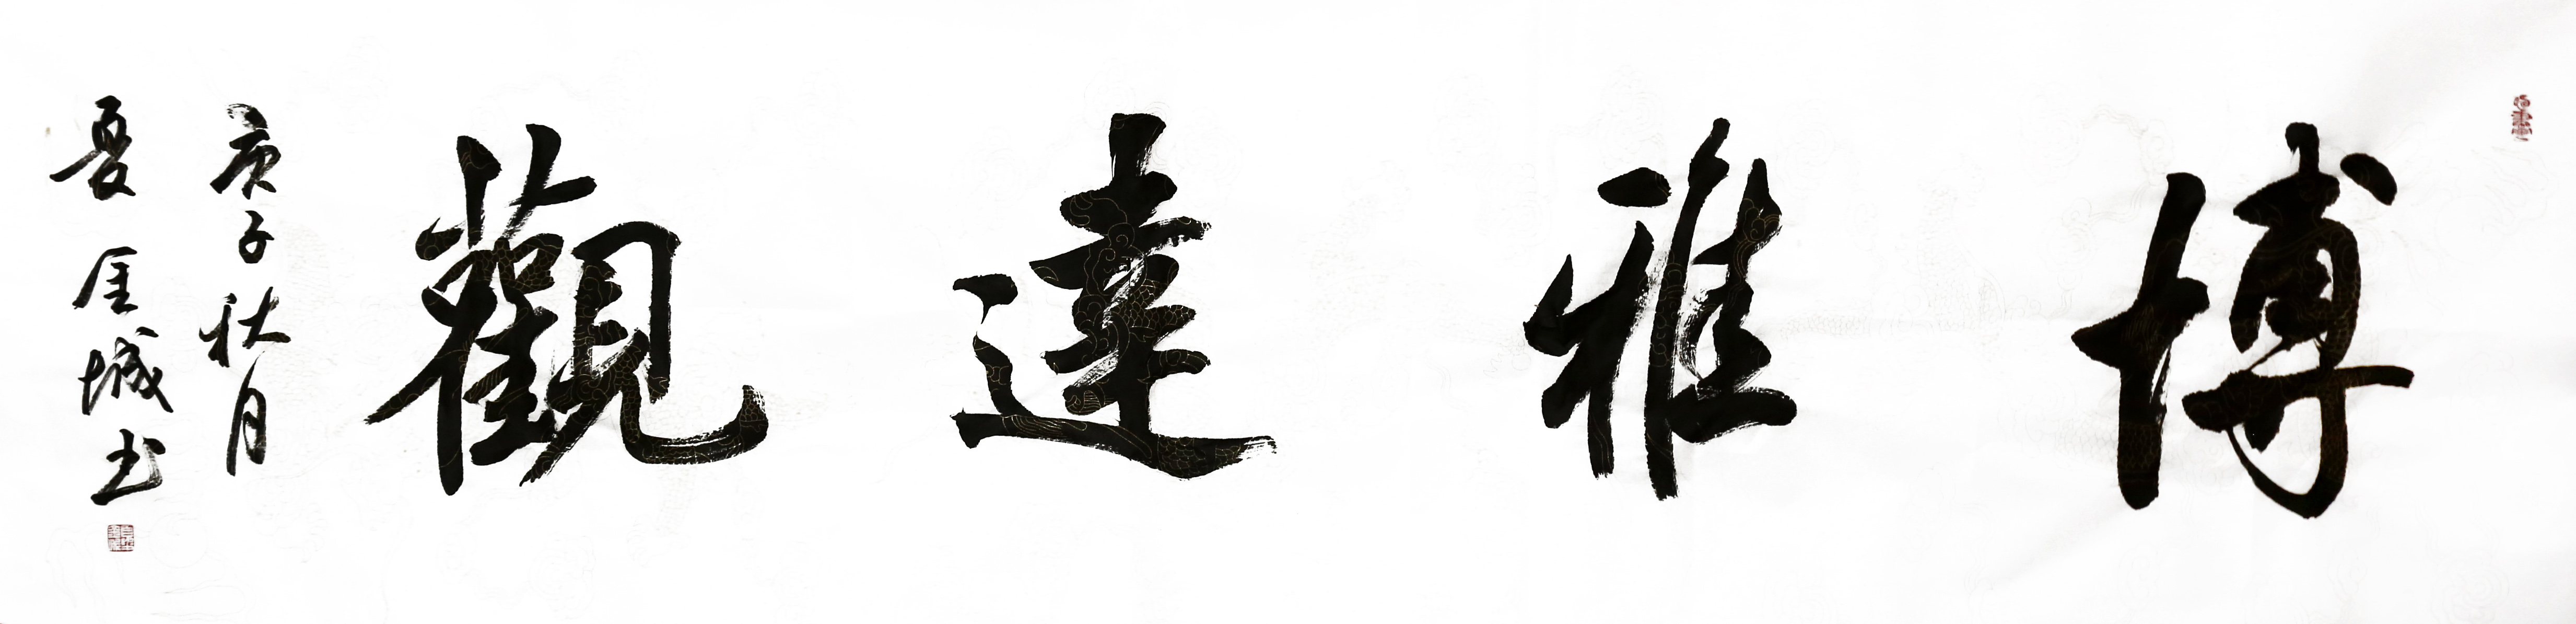 博雅達觀
庚子秋月
夏金城书